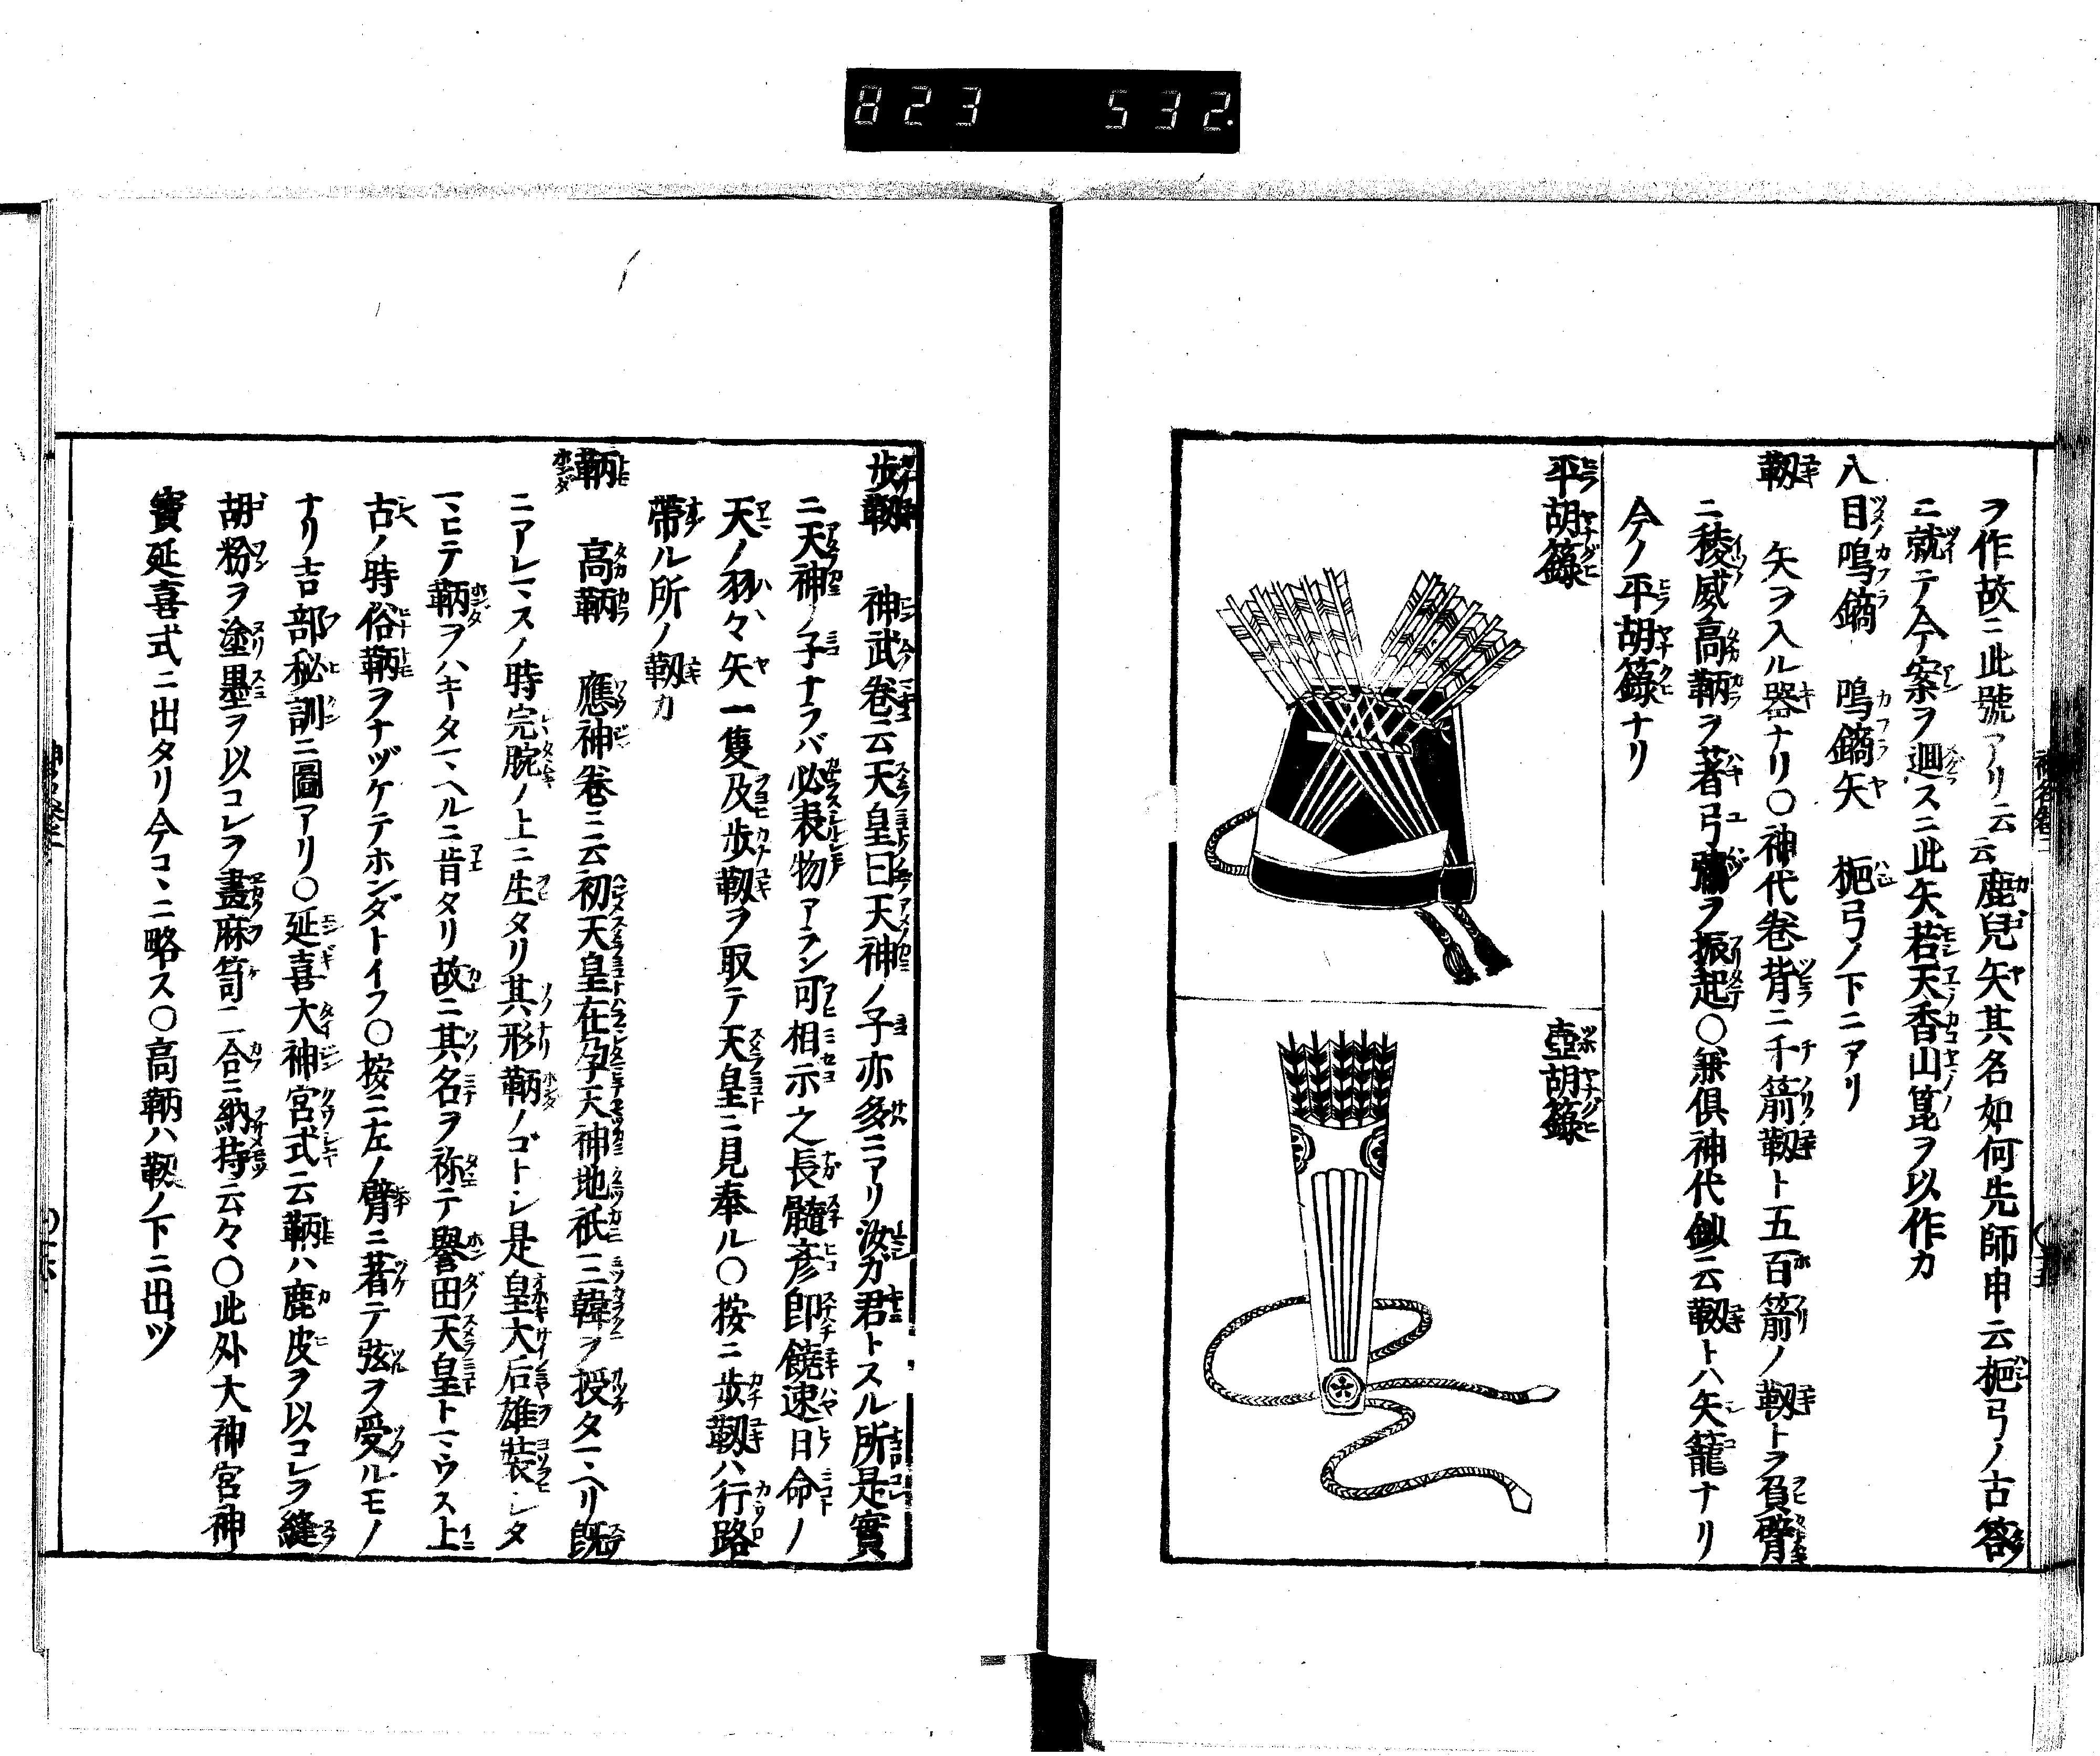 823 532.
ヲ作故ニ此號アリ云云鹿兒矢其名如何先師申云梔弓ノ古答
ニ就テ今案ヲ廻スニ此矢若天香山篦ヲ以作カ
八目鳴鏑 鳴鏑矢 梔弓ノ下ニアリ
靫 矢ヲ入ル器ナリ○神代卷背ニ千箭靫ト五百箭ノ靫トヲ負臂
ニ稜威高鞆ヲ著弓彇ヲ振起○兼倶神代鈔云靫トハ矢籠ナリ
今ノ平胡籙ナリ
平胡籙
壺胡籙
歩靫 神武卷云天皇曰天神ノ子亦多ニアリ汝ガ君トスル所是實
ニ天神ノ子ナラバ必表物アラン可相示之長髓彦即饒速日命ノ
天ノ羽々矢一隻及歩靫ヲ取テ天皇ニ見奉ル○按ニ歩靫ハ行路
帶ル所ノ靫カ
鞆 高鞆 應神卷ニ云初天皇在孕天神地祇三韓ヲ授タマヘリ既
ニアレマスノ時完腕ノ上ニ生タリ其形鞆ノゴトシ是皇大后雄裝シタ
マヒテ鞆ヲハキタマヘルニ肖タリ故ニ其名ヲ称テ譽田天皇トマウス上
古ノ時俗鞆ヲナヅケテホンダトイフ○按ニ左ノ臂ニ著テ弦ヲ受ルモノ
ナリ吉部秘訓ニ圖アリ○延喜大神宮式ニ云鞆ハ鹿皮ヲ以コレヲ縫
胡粉ヲ塗墨ヲ以コレヲ畫麻笥二合ニ納持云々○此外大神宮神
寶延喜式ニ出タリ今コヽニ略ス○高鞆ハ靫ノ下ニ出ツ